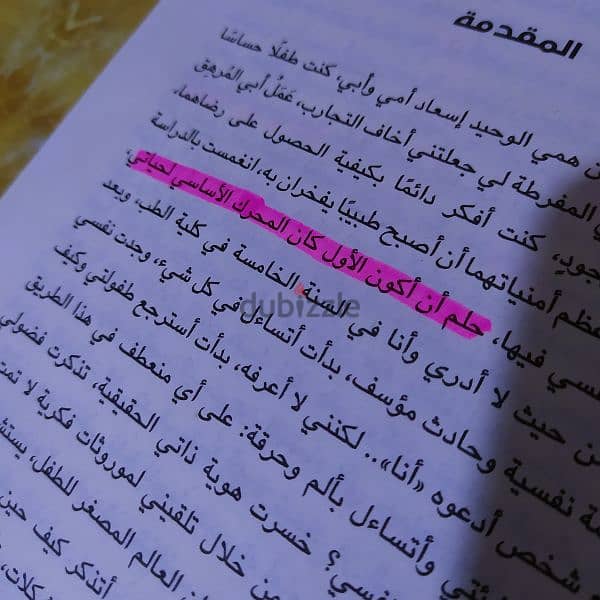 المقدمة
همي الوحيد إسعاد أمي وأبي، كنت طفلًا حساسًا
المفرطة لي جعلتني أخاف التجارب، عَمَلُ أبي المُرهِق
كنت أفكر دائمًا بكيفية الحصول على رضاهما،
أمنياتهما أن أصبح طبيبًا يفخران به، انغمست بالدراسة
فيها، حلم أن أكون الأول كان المحرك الأساسي لحياتي،
حيث لا أدري وأنا في السنة الخامسة في كلية الطب، وبعد
نفسية وحادث مؤسف، بدأت أتساءل في كل شيء، وجدت نفسي
شخص أدعوه «أنا».. لكنني لا أعرفه، بدأت أسترجع طفولتي وكيف
وأتساءل بألم وحرقة: على أي منعطف في هذا الطريق
خسرت هوية ذاتي الحقيقية، تذكرت فضولي
من خلال تلقيني لموروثات فكرية لا
العالم المصغر للطفل،
أتذكر كيف حين
dubizzle